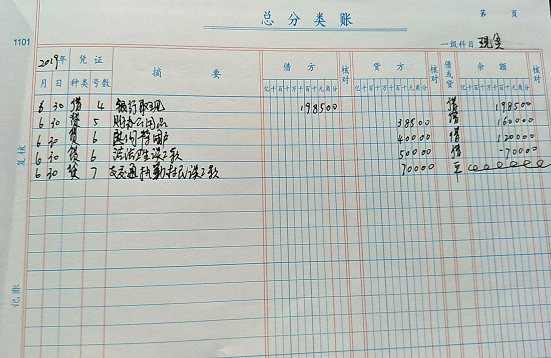 总分类账
第 页
1101
一级科目 现金
2019年 凭证 摘要 借方 核对 贷方 核对 借或贷 余额
月 日 种类 号数 亿千百十万千百十元角分 亿千百十万千百十元角分 亿千百十万千百十元角分
6 30 借 4 银行取现 198500 借 198500
6 30 贷 5 购办公用品 38500 借 160000
6 30 贷 6 慰问特困户 40000 借 120000
6 30 贷 6 卫生误工款 50000 借 -70000
6 30 贷 7 交通执勤 误工款 70000 平
复核
记账